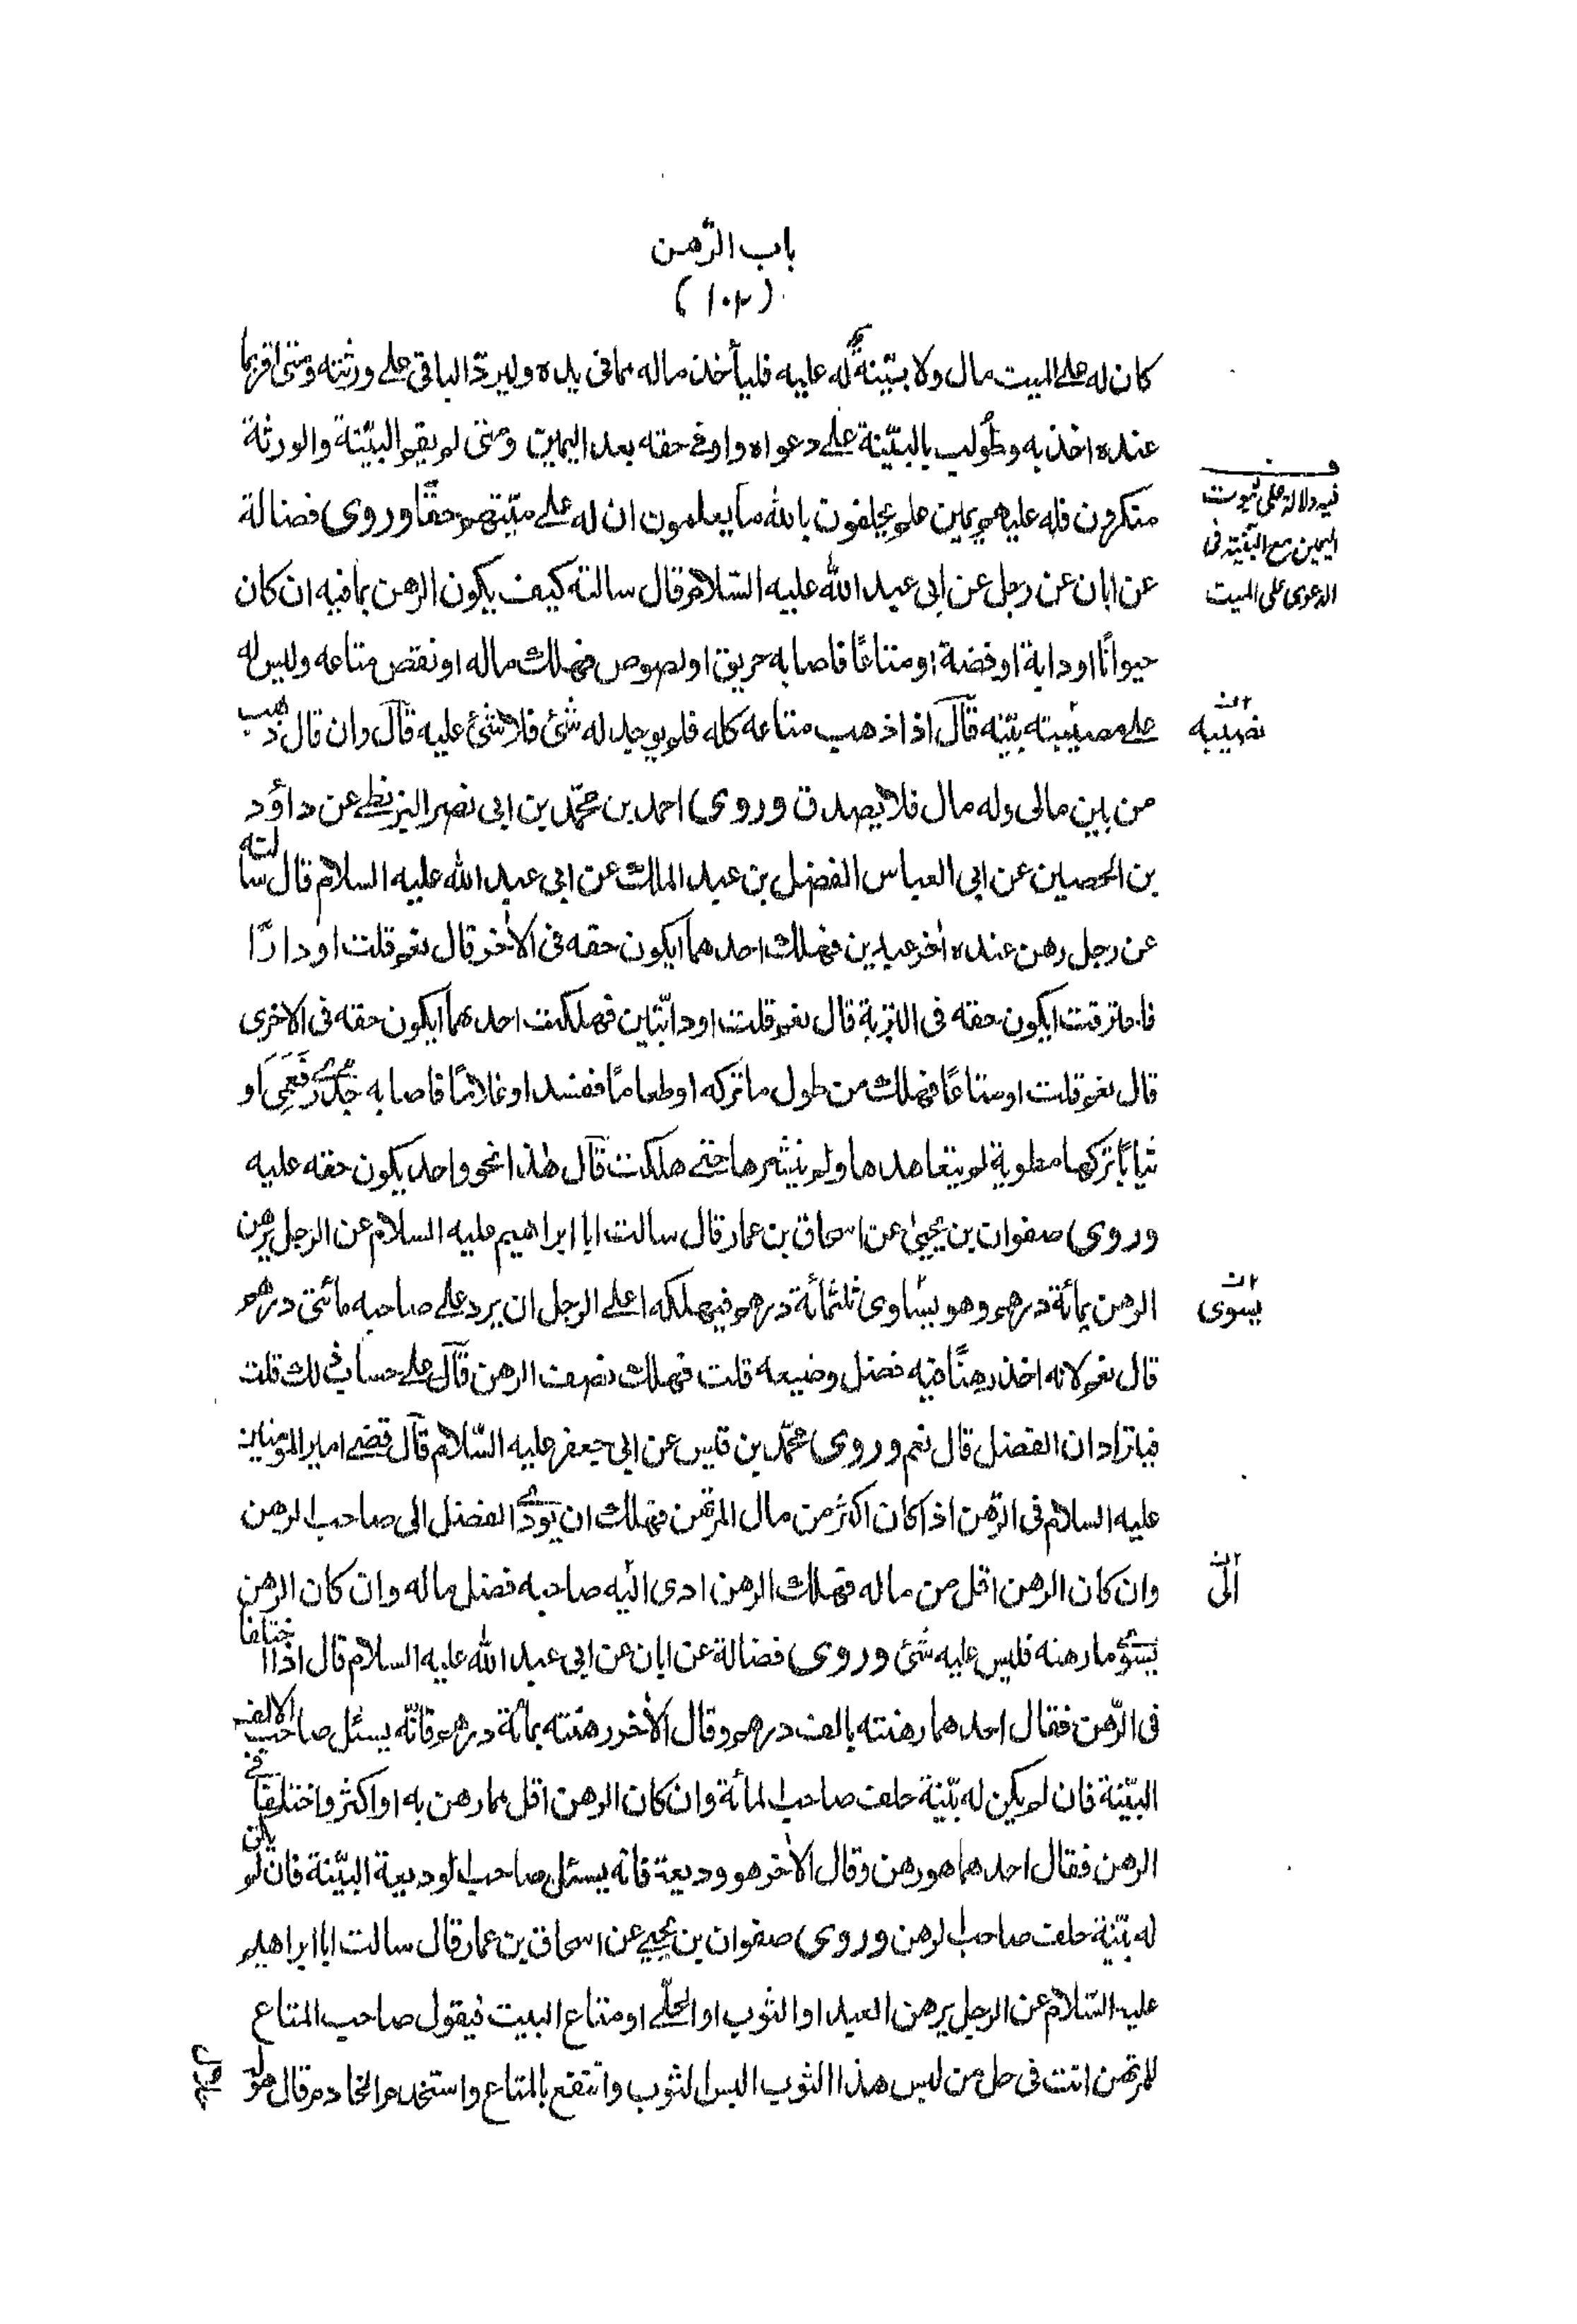 باب الرّهن
(١٠٢)
كان له على الميت مال ولا بيّنة له عليه فليأخذ ماله مما فى يده وليردّ الباقى على ورثته ومتى اقر بما
عنده اخذ به وطُولب بالبيّنة على دعواه واوفى حقه بعد اليمين ومتى لم يقم البيّنة والورثة
منكرون فله عليهم يمين علم يحلفون بالله ما يعلمون ان له على ميّتهم حقًّا وروى فضالة
عن ابان عن رجل عن ابى عبد الله عليه السّلام قال سالته كيف يكون الرهن بما فيه ان كان
حيوانًا او دابة او فضة او متاعًا فاصابه حريق او لصوص فهلك ماله او نقص متاعه وليس له
على مصيبته بيّنه قال اذا ذهب متاعه كله فلم يوجد له شئ فلا شئ عليه قال وان قال ذهب
من بين مالى وله مال فلا يصدق وروى احمد بن محمّد بن ابى نصر البزنطى عن داؤد
بن الحصين عن ابى العباس الفضل بن عبد الملك عن ابى عبد الله عليه السلام قال سالته
عن رجل رهن عنده اٰخر عبدين فهلك احدهما ايكون حقه فى الاٰخر قال نعم قلت او دارًا
فاحترقت ايكون حقه فى التربة قال نعم قلت او دابّتين فهلكت احدهما ايكون حقه فى الاخرى
قال نعم قلت او متاعًا فهلك من طول ما تركه او طعامًا ففسد او غلامًا فاصابه جُدَرِى فَعَمِىَ او
ثيابًا تركها مطوية لم يتعاهدها ولم ينشرها حتى هلكت قال هٰذا نحو واحد يكون حقه عليه
وروى صفوان بن يحيىٰ عن اسحاق بن عمار قال سالت ابا ابراهيم عليه السلام عن الرجل يرهن
الرهن بمائة درهم وهو يساوى ثلثمائة درهم فيهلكه اعلى الرجل ان يرد على صاحبه مائتى درهم
قال نعم لانه اخذ رهنًا فيه فضل وضيعه قلت فهلك نصف الرهن قال على حساب ذلك قلت
فيترادان الفضل قال نعم وروى محمّد بن قيس عن ابى جعفر عليه السّلام قال قضى امير المومنين
عليه السلام فى الرّهن اذا كان اكثر من مال المرتهن فهلك ان يودى الفضل الى صاحب الرهن
وان كان الرهن اقل من ماله فهلك الرهن ادى اليه صاحبه فضل ماله وان كان الرهن
يسوى ما رهنه فليس عليه شئ وروى فضالة عن ابان عن ابى عبد الله عليه السلام قال اذا اختلفا
فى الرّهن فقال احدهما رهنته بالف درهم وقال الاٰخر رهنته بمائة درهم فانّه يسئل صاحب الالف
البيّنة فان لم يكن له بيّنة حلف صاحب المأة وان كان الرهن اقل مما رهن به او اكثر واختلفا فى
الرهن فقال احدهما هو رهن وقال الاٰخر هو وديعة فانه يسئل صاحب الوديعة البيّنة فان لم يكن
له بيّنة حلف صاحب الرهن وروى صفوان بن يحيى عن اسحاق بن عمار قال سالت ابا ابراهيم
عليه السّلام عن الرجل يرهن العبد او الثوب او الحلّى او متاع البيت فيقول صاحب المتاع
للمرتهن انت فى حل من لبس هذا الثوب البس الثوب وانتفع بالمتاع واستخدم الخادم قال هو له
حلال
ف
فيه دلالة على ثبوت
اليمين مع البيّنة فى
الدعوى على الميت
نصيبه
يسوى
الىّ